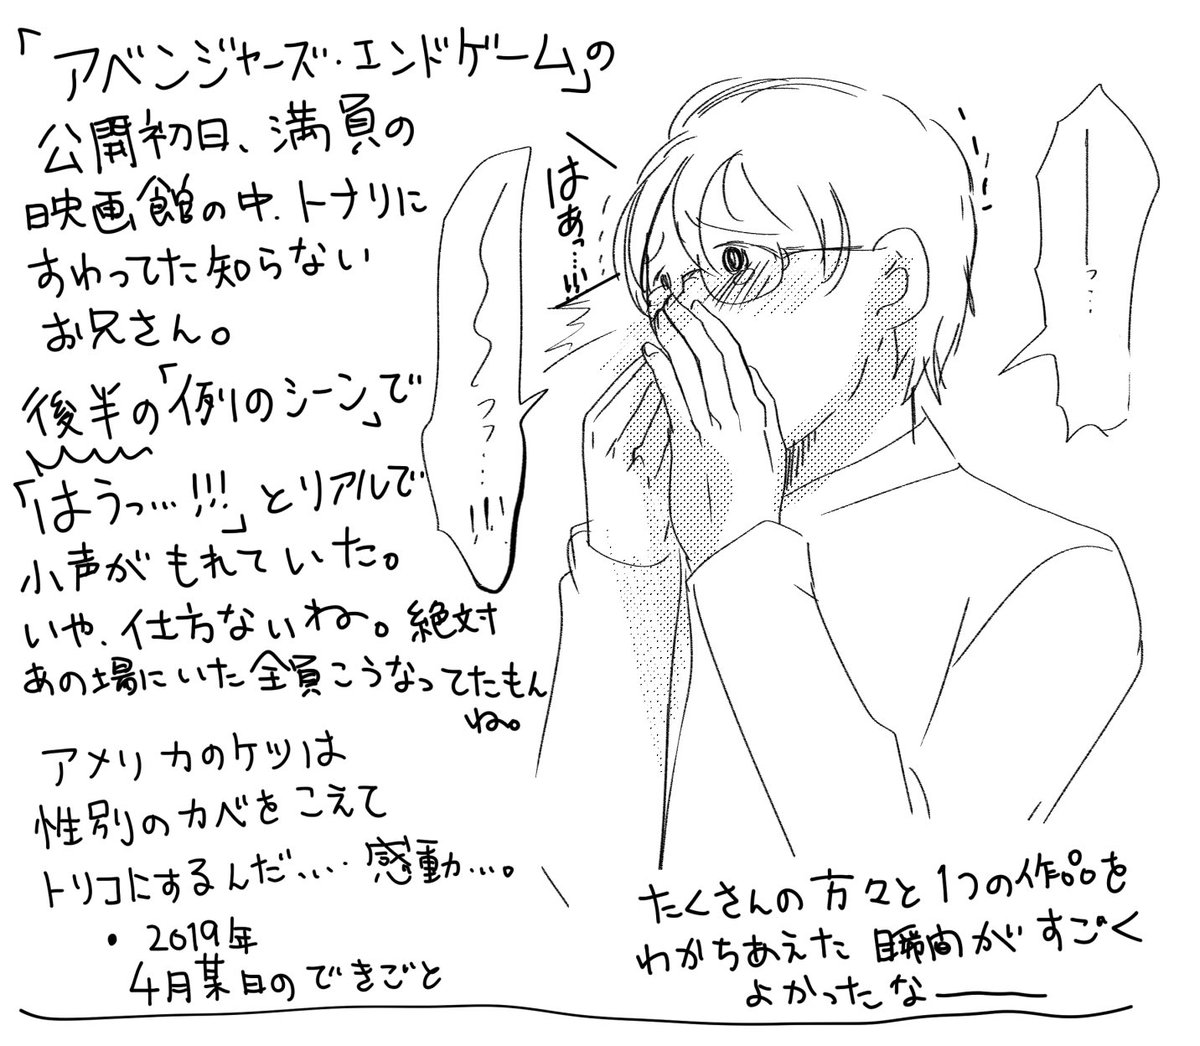 「アベンジャーズ・エンドゲーム」の
公開初日、満員の
映画館の中、トナリに
すわってた知らない
お兄さん。
後半の「例のシーン」で
「はうっ…!!!」とリアルで
小声がもれていた。
いや、仕方ないね。絶対
あの場にいた全員こうなってたもん
ね。
アメリカのケツは
性別のカベをこえて
トリコにするんだ、、、感動…。
・2019年
4月某日のできごと
はぁっ…!!!
っ……!!!
っ…
たくさんの方々と1つの作品を
わかちあえた瞬間がすごく
よかったなー